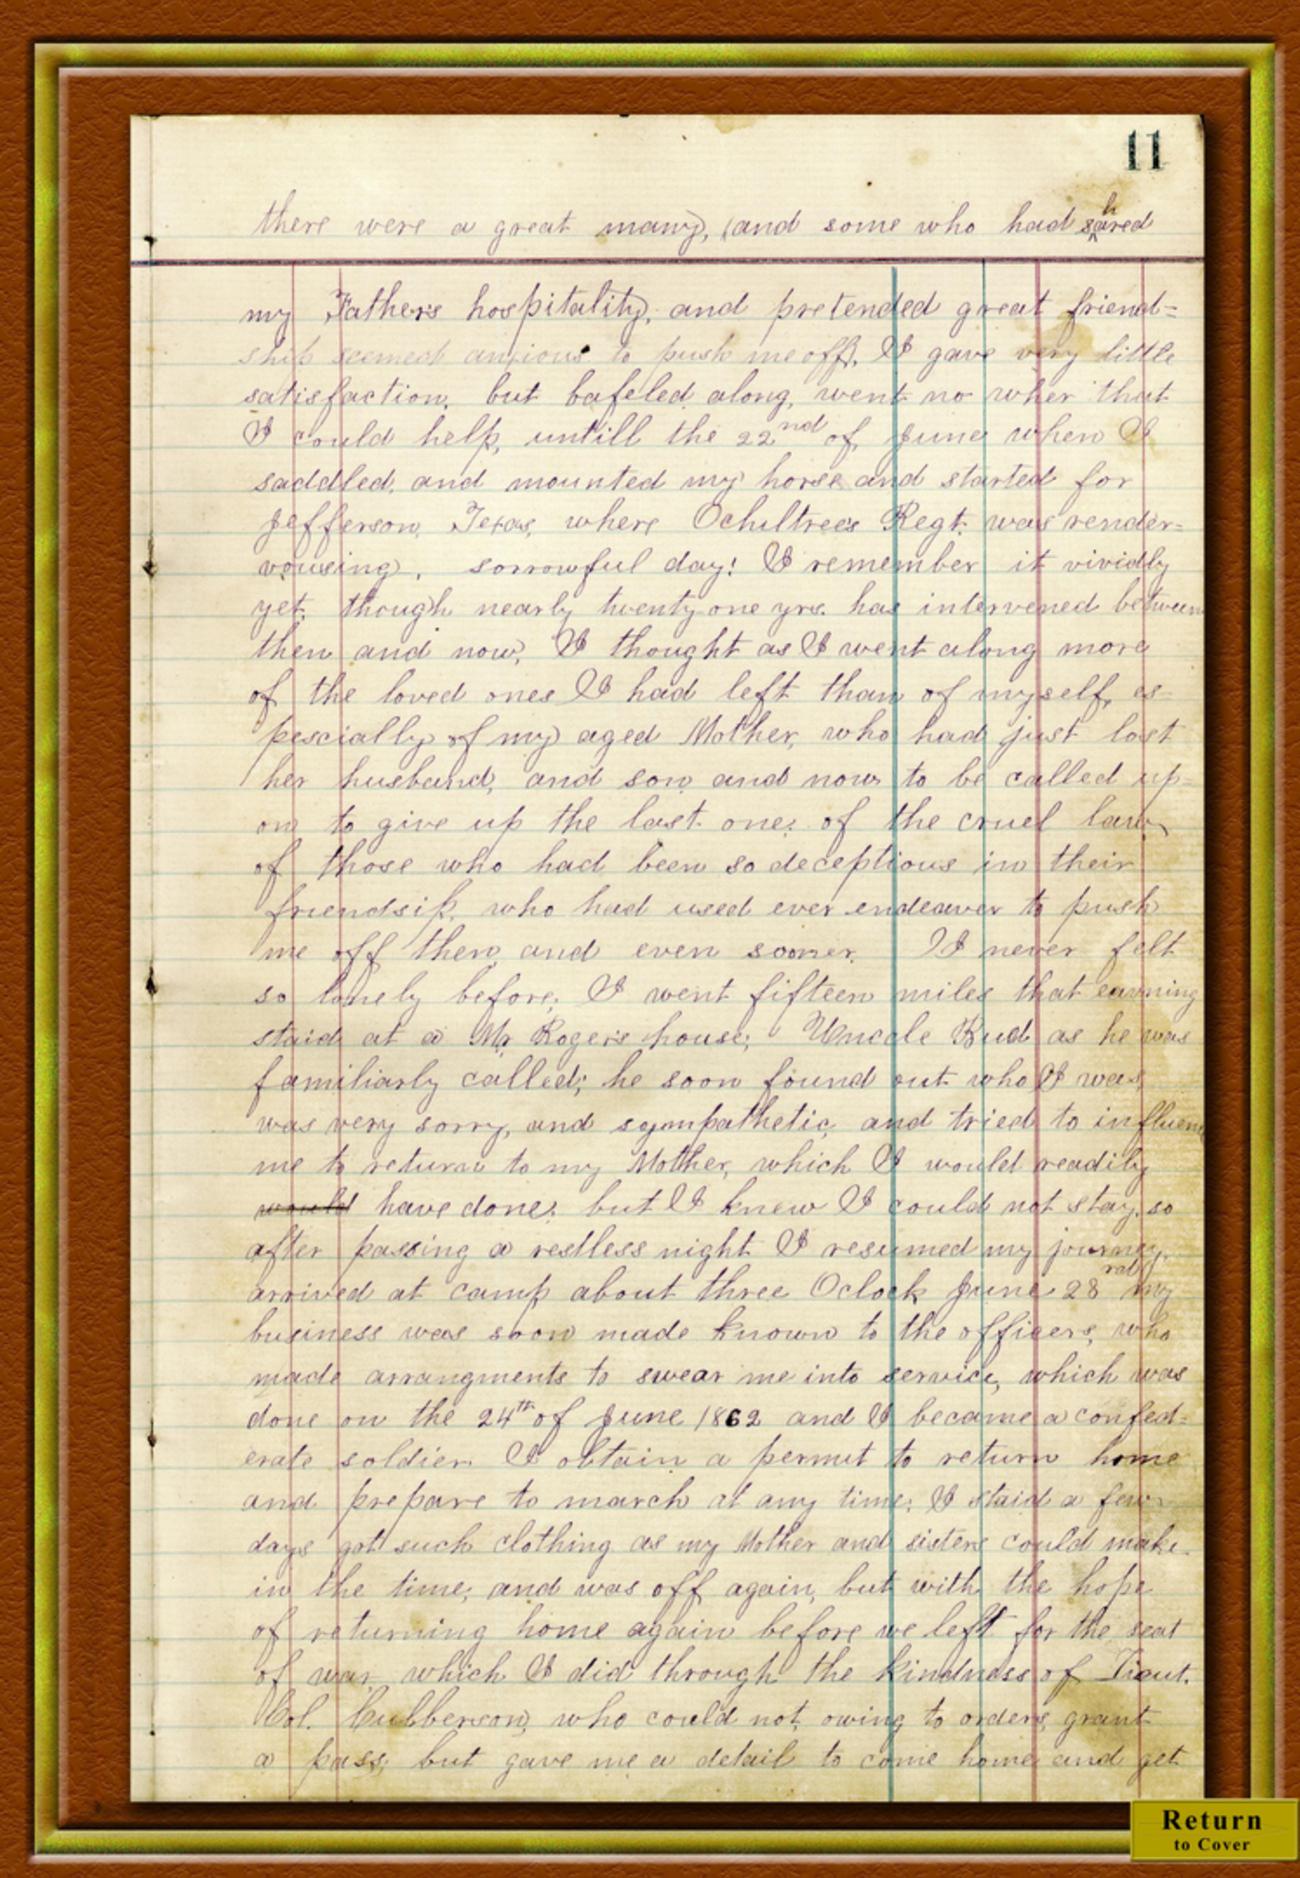 11
there were a great many, (and some who had shared
my Father's hospitality, and pretended great friend=
ship seemed anxious to push me off. I gave very little
satisfaction, but bafeled along, went no wher that
I could help, untill the 22nd of June when I
saddled, and mounted my horse and started for
Jefferson, Texas, where Ochiltree's Regt. was render=
vousing, sorrowful day! I remember it vividly
yet, though nearly twenty-one yrs. has intervened between
then and now, I thought as I went along more
of the loved ones I had left than of myself, es-
pescially of my aged Mother, who had just lost
her husband, and son and now to be called up=
on to give up the last one; of the cruel law,
of those who had been so deceptious in their
friendsip, who had used ever endeaver to push
me off then, and even sooner. I never felt
so lonely before, I went fifteen miles that
staid at a Mr Roger's house; Uncle Bud as he was
familiarly called; he soon found out who I was,
was very sorry, and sympathetic, and tried to
me to return to my Mother, which I would readily
would have done; but I knew I could not stay, so
after passing a restless night I resumed my journey,
arrived at camp about three Oclock June my
business was soon made known to the officers, who
made arrangments to swear me into service, which was
done on the 24th of June 1862 and I became a confed=
erate soldier. I obtain a permit to return home
and prepare to march at any time; I staid a few
days got such clothing as my Mother and sisters could make
in the time; and was off again, but with the hope
of returning home again before we left for the seat
of war, which I did through the kindness of Lieut.
Col. Culberson, who could not, owing to orders, grant
a pass; but gave me a detail to come home and get
Return
to Cover